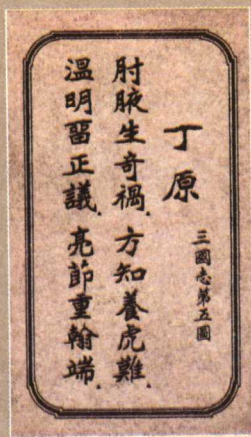 丁原
三國志第五圖
肘腋生奇禍. 方知養虎難.
溫明畱正議. 亮節重翰端.